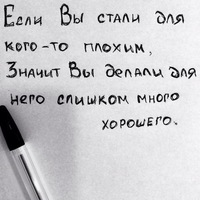 Если Вы стали для
кого-то плохим,
Значит Вы делали для
него слишком много
хорошего.